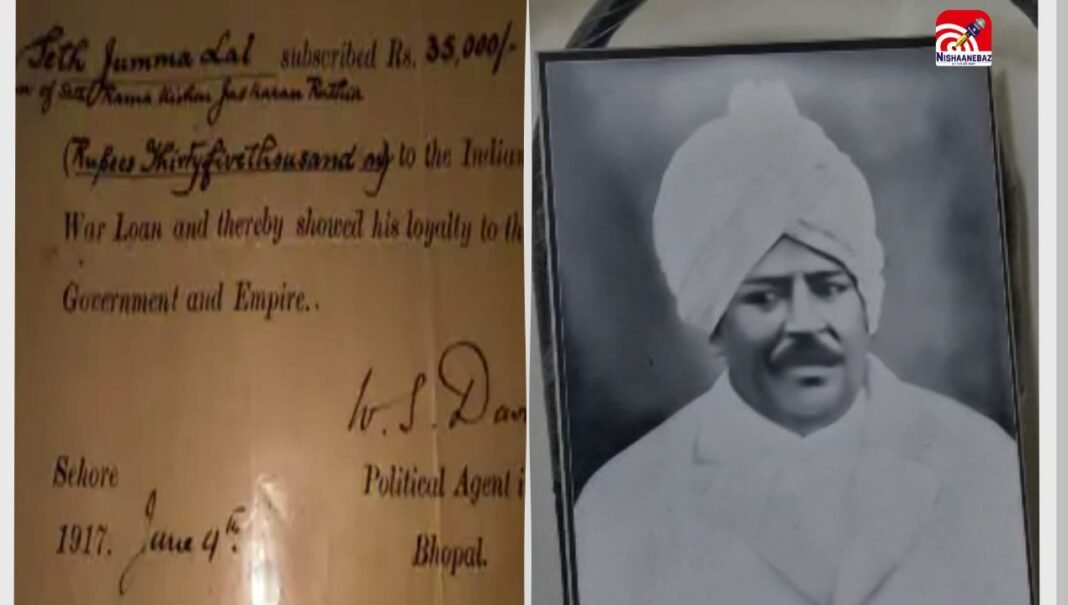 Seth Jumma Lal subscribed Rs. 35,000/-
of Seth Rama Kishan Jaskaran Ruthia
(Rupees Thirtyfive thousand only) to the Indian
War Loan and thereby showed his loyalty to th
Government and Empire..
W. S. Dav
Sehore Political Agent i
1917. June 4th. Bhopal.
NISHAANEBAZ